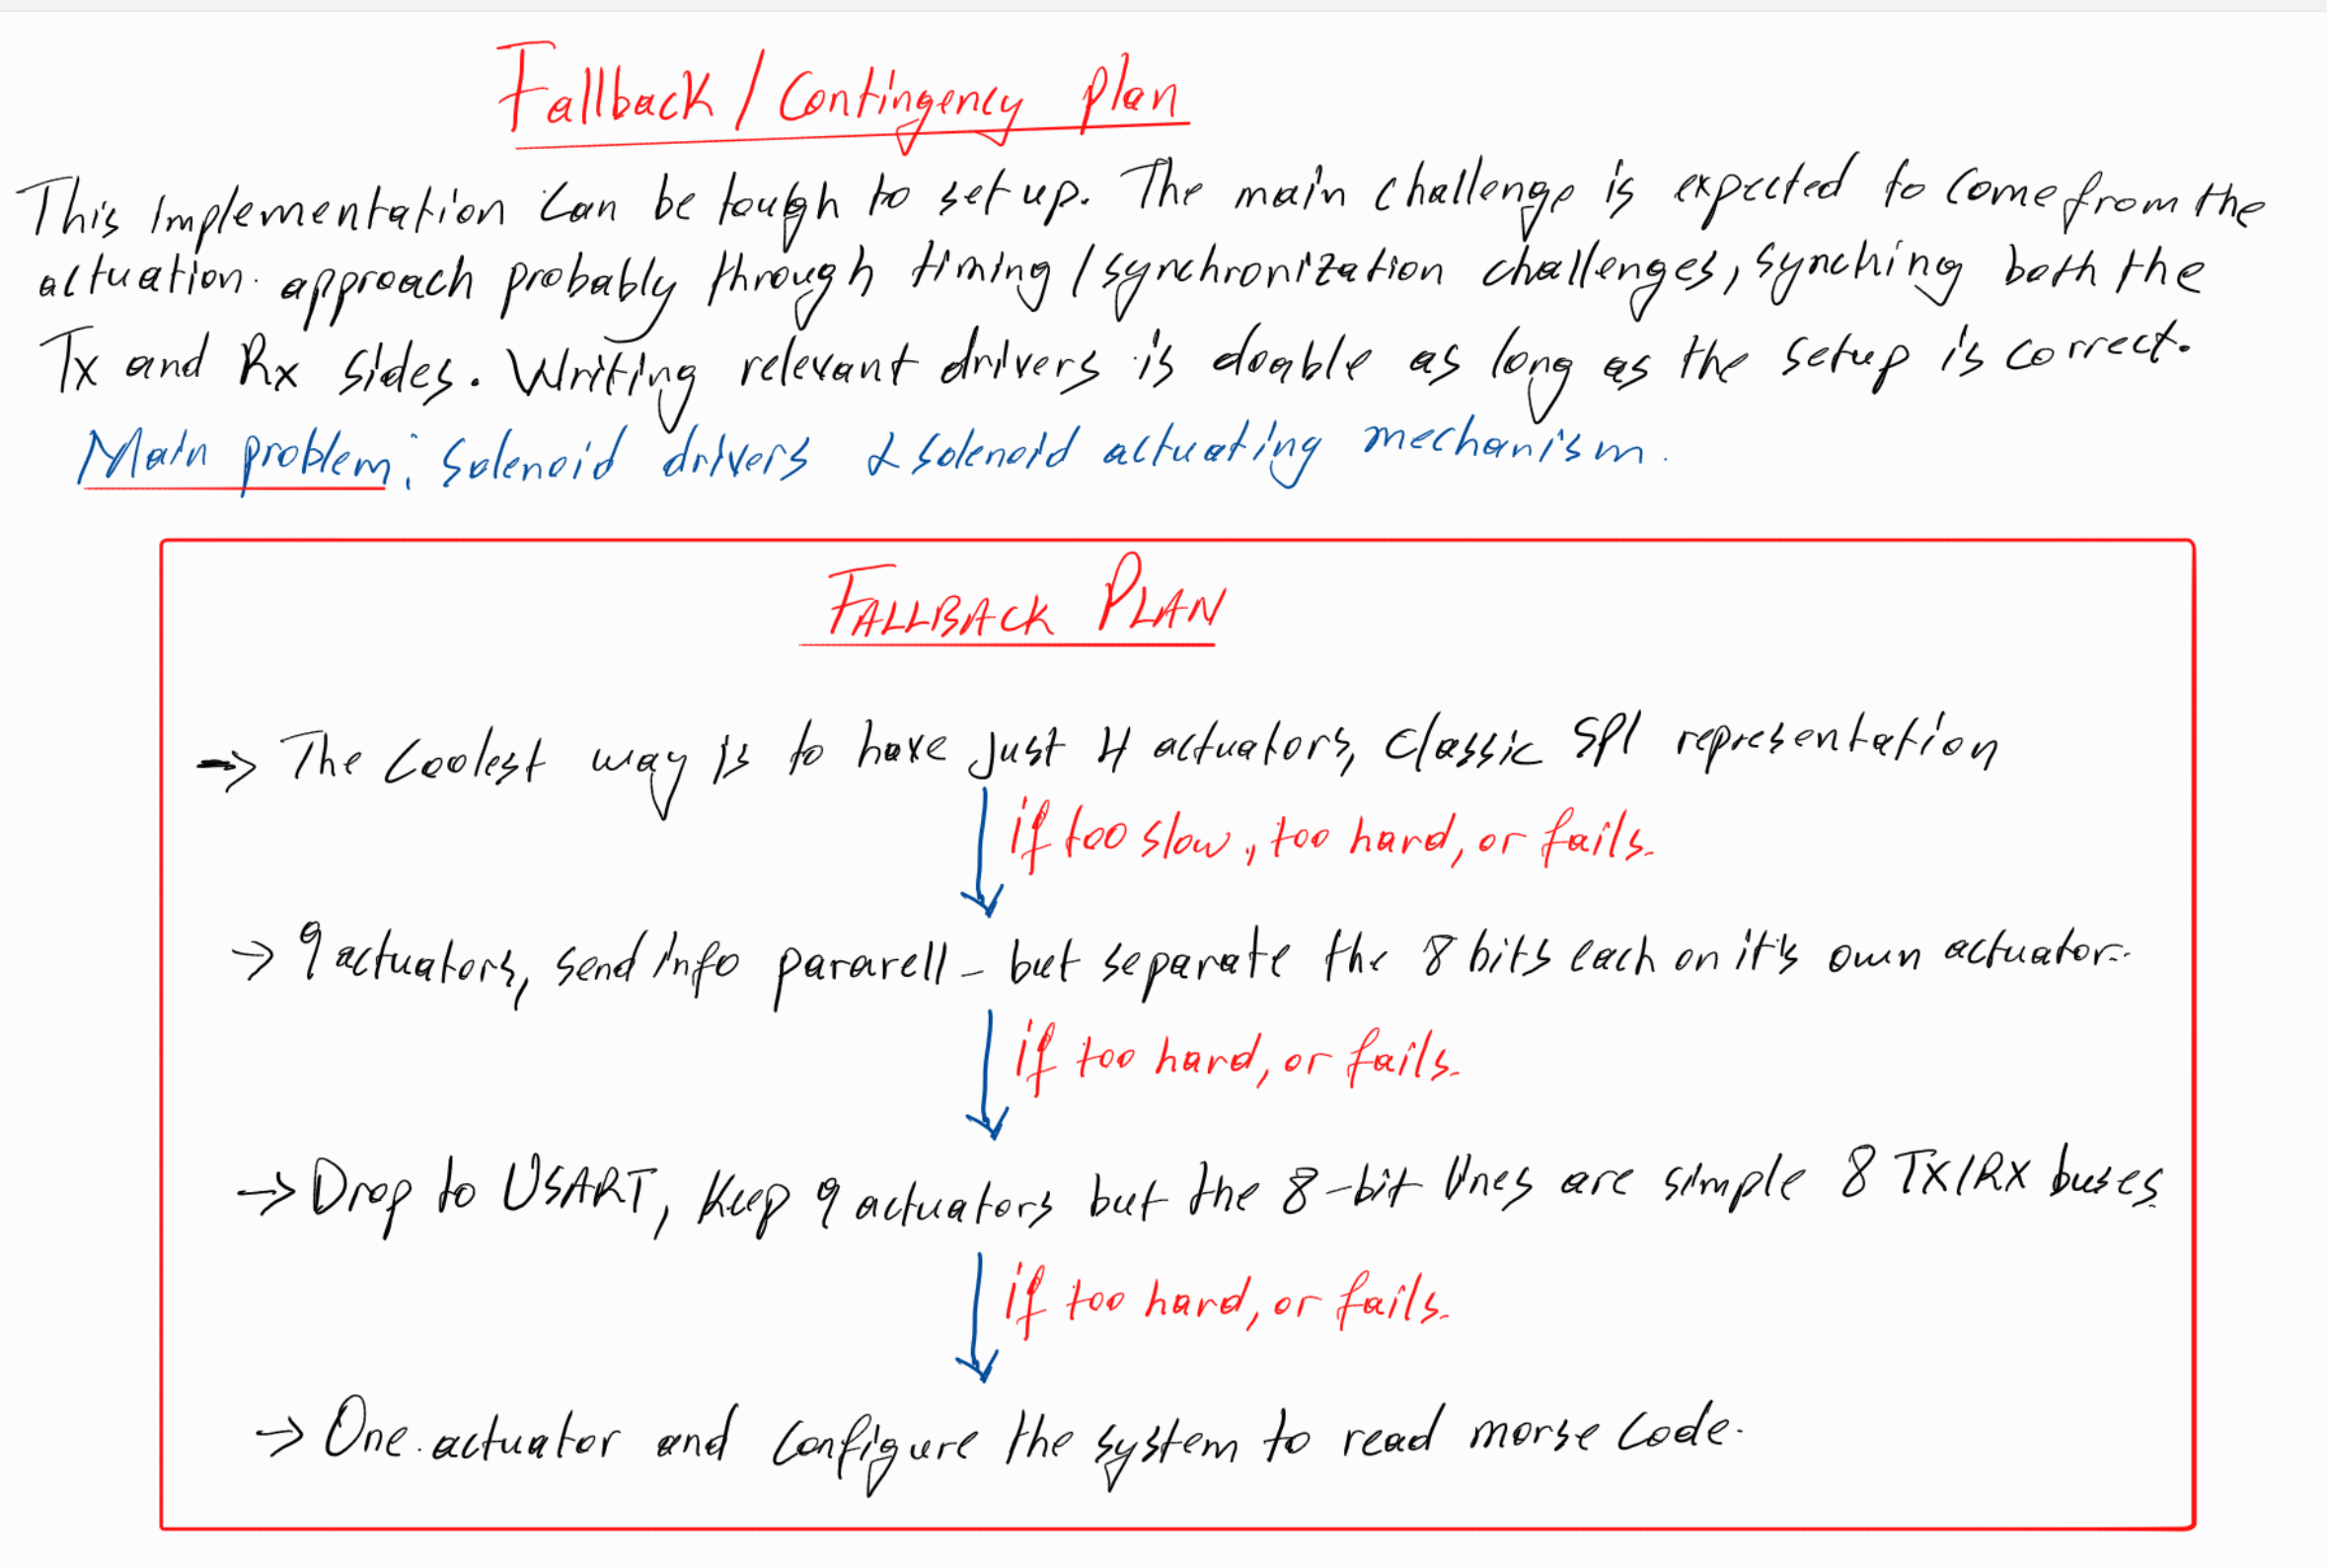 Fallback / Contingency plan
This Implementation can be tough to set up. The main challenge is expected to come from the
actuation. approach probably through timing / synchronization challenges, synching both the
Tx and Rx sides. Writing relevant drivers is doable as long as the setup is correct.
Main problem: Solenoid drivers & solenoid actuating mechanism.
FALLBACK PLAN
-> The coolest way is to have just 4 actuators, classic SPI representation
if too slow, too hard, or fails.
-> 9 actuators, send info pararell - but separate the 8 bits each on it's own actuator.
if too hard, or fails.
-> Drop to USART, keep 9 actuators but the 8-bit lines are simple 8 TX/RX buses.
if too hard, or fails.
-> One actuator and configure the system to read morse code.